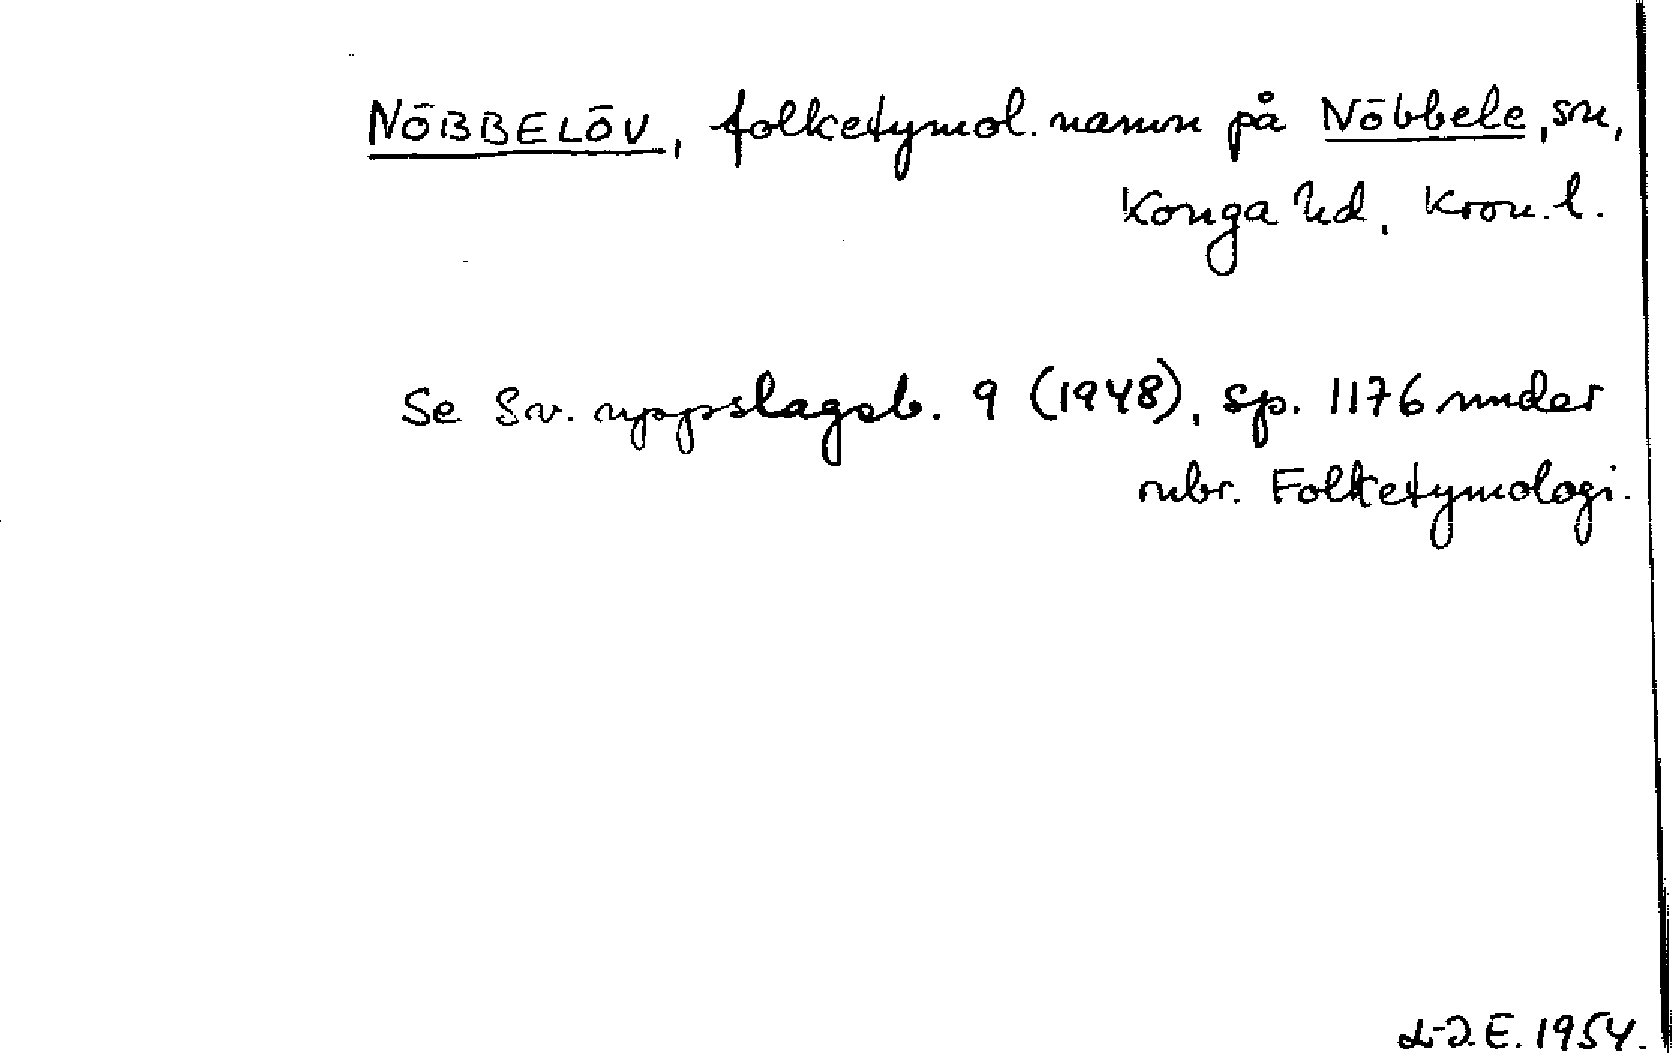 NÖBBELÖV, folketymol. namn på Nöbbele, sn,
Konga hd, Kron. l.
Se Sv. uppslagsb. 9 (1948), sp. 1176 under
rubr. Folketymologi.
E. 1954.